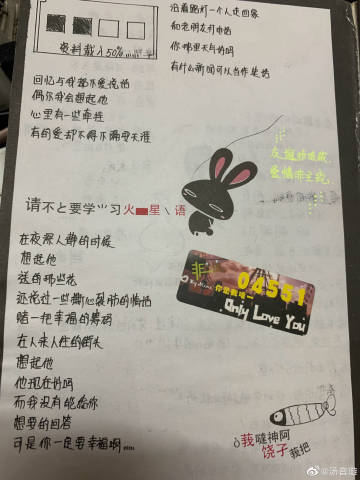 资料载入50%
沿着路灯一个人走回家
和老朋友打电话
你那里天气好吗
有什么新闻可以当作笑话
回忆与我都不爱说话
偶尔我会想起他
心里有一些牵挂
有的爱却不得不隔着天涯
友谊
爱情
请不要学习火星语
在夜深人静的时候
想起他
送的那些花
还说过一些撕心裂肺的情话
赌一把幸福的筹码
在人来人往的街头
想起他
他现在好吗
而我没有能给你
想要的回答
可是你一定要幸福啊
非
04551
你是我唯一
Only Love You
莪哒神阿
饶子莪把
@汤音璇